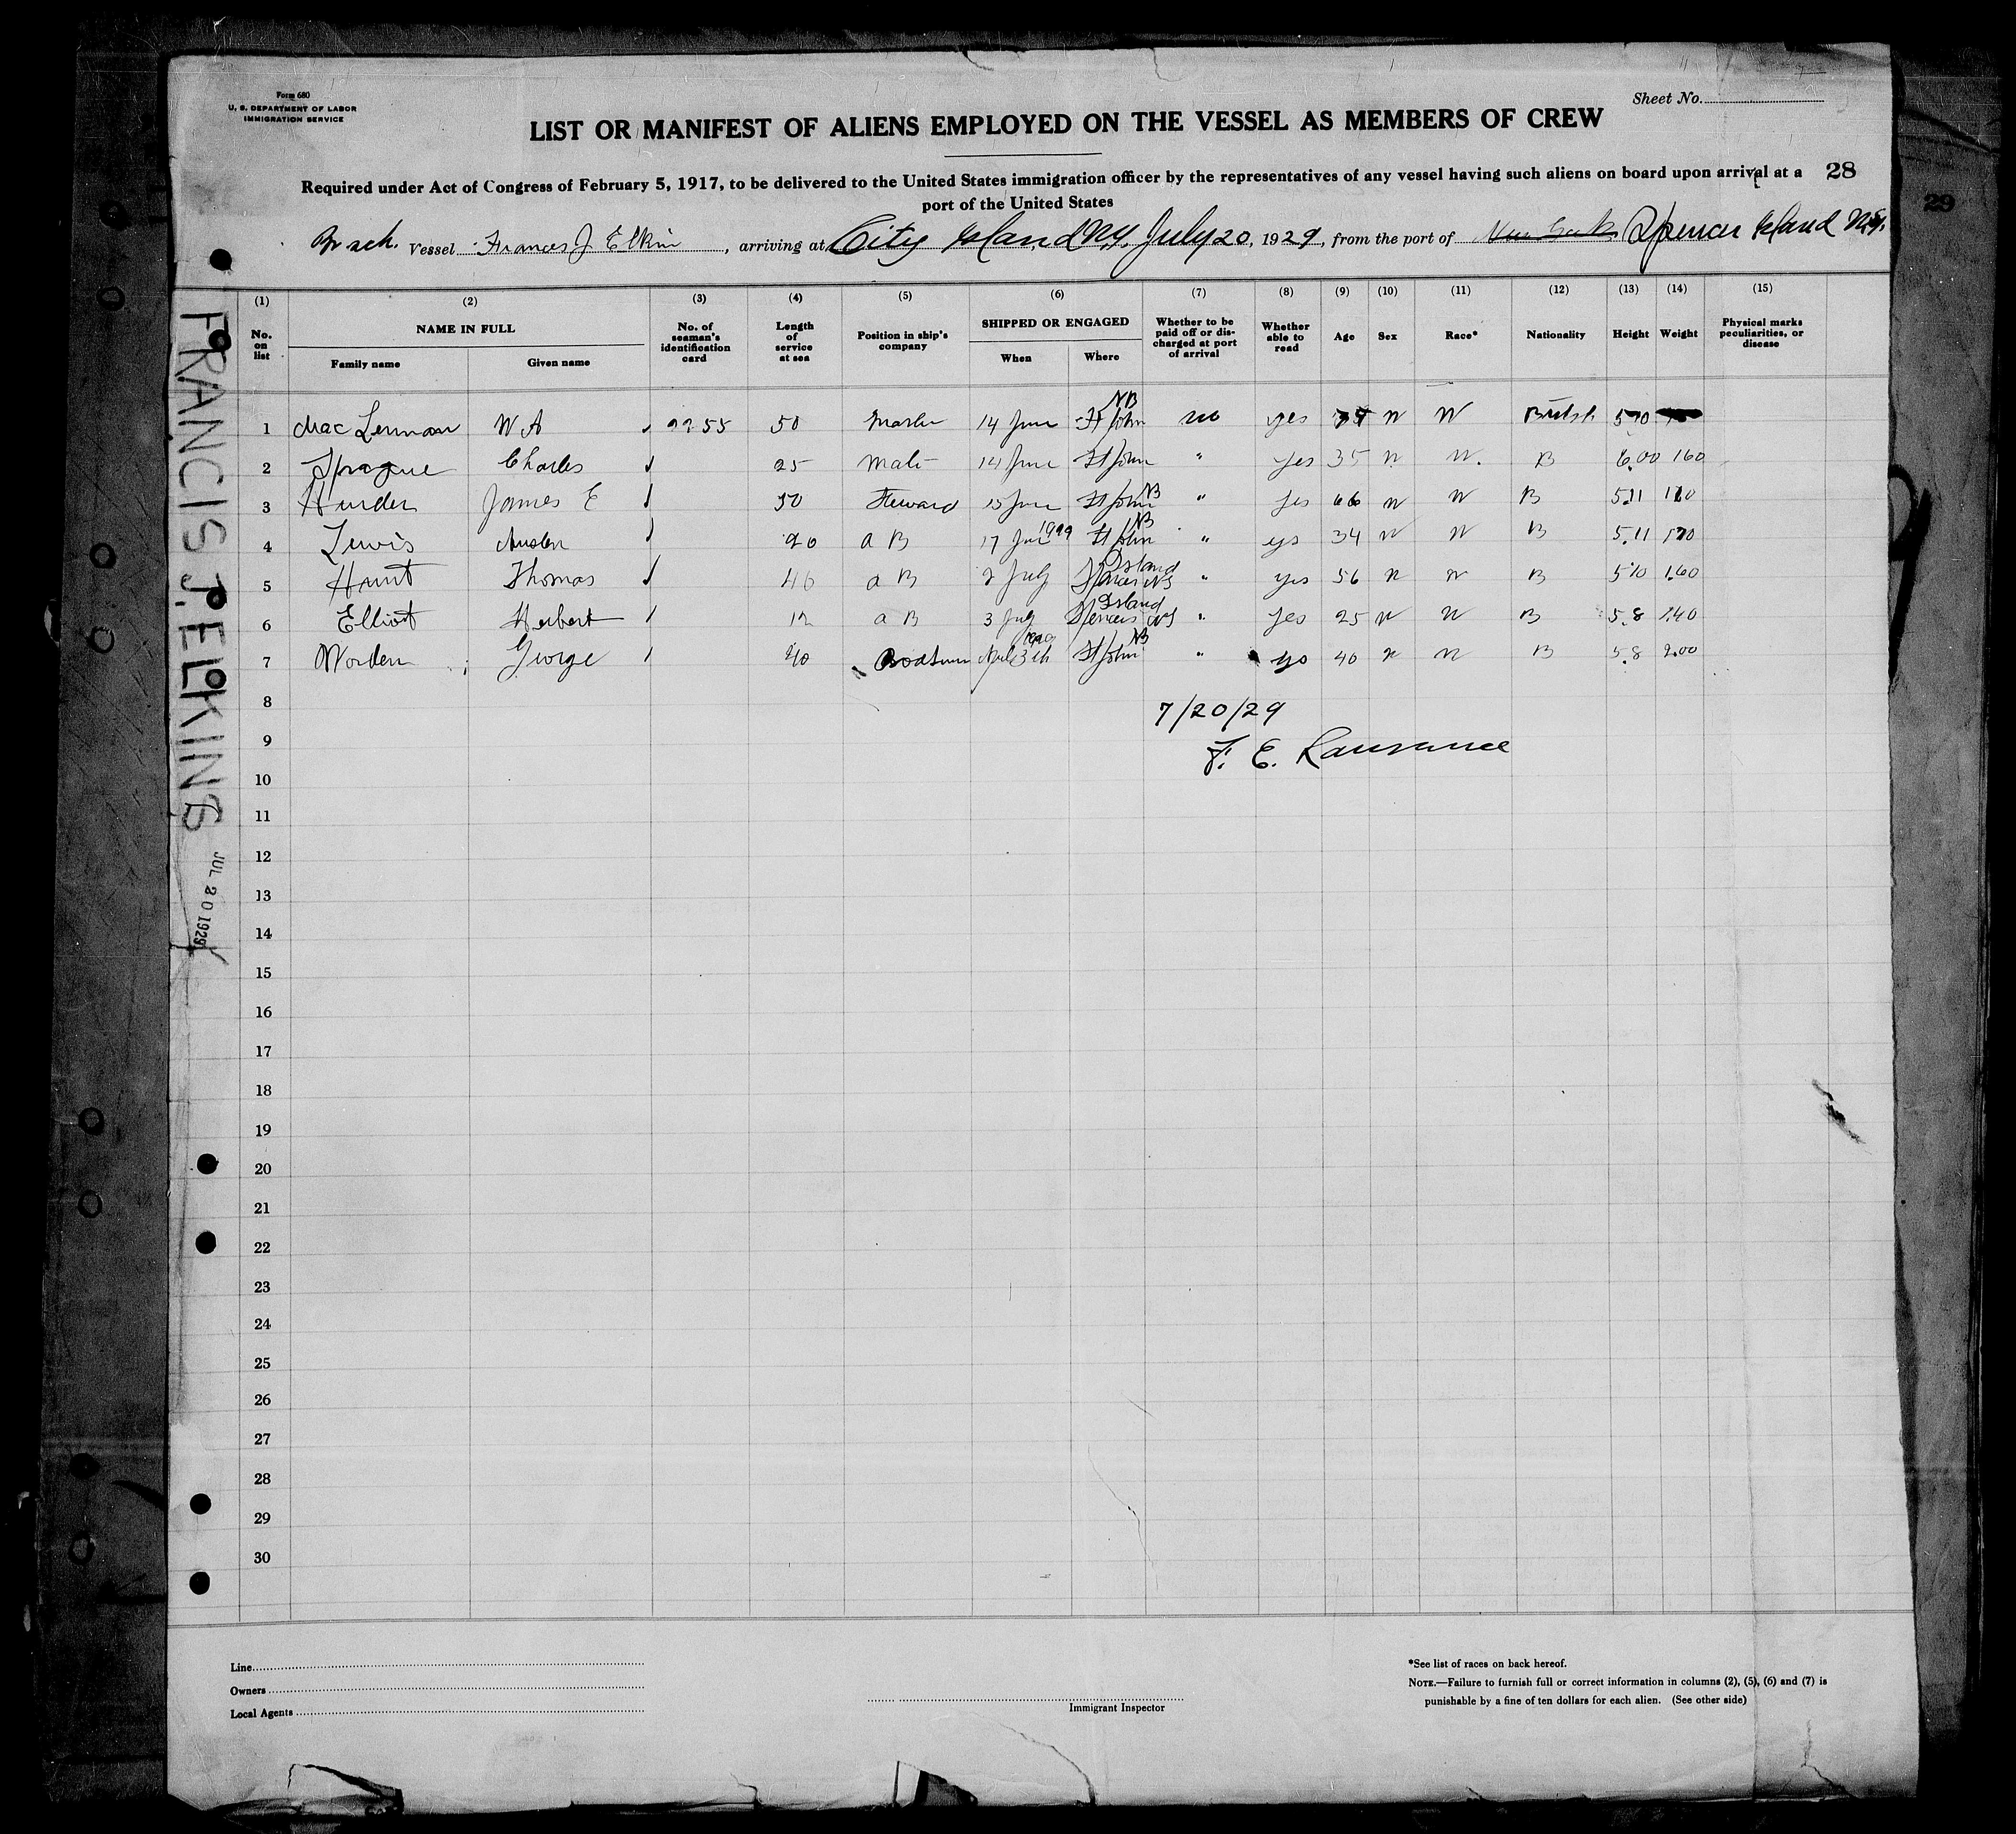 Form 680
U. S. DEPARTMENT OF LABOR
IMMIGRATION SERVICE
Sheet No.
LIST OR MANIFEST OF ALIENS EMPLOYED ON THE VESSEL AS MEMBERS OF CREW
Required under Act of Congress of February 5, 1917, to be delivered to the United States immigration officer by the representatives of any vessel having such aliens on board upon arrival at a 28
port of the United States
29
Br sch. Vessel Frances J Elkin, arriving at City Island NY, July 20, 1929, from the port of Spencer Island N.S.
(1) (2) (3) (4) (5) (6) (7) (8) (9) (10) (11) (12) (13) (14) (15)
No. on list NAME IN FULL Family name Given name No. of seaman's identification card Length of service at sea Position in ship's company SHIPPED OR ENGAGED When Where Whether to be paid off or discharged at port of arrival Whether able to read Age Sex Race* Nationality Height Weight Physical marks peculiarities, or disease
1 W A 50 Master 14 June St John NB no yes British 5 10
2 Sprague Charles 25 Mate 14 June St John " yes 35 B 6.00 160
3 James E 50 Steward 15 June St John NB " yes 66 B 5.11
4 Lewis 20 a B 17 St John NB " yes 34 B 5.11
5 Hunt Thomas a B 2 July Spencer Island NS " yes 56 B 5 10 160
6 Elliot Herbert 12 a B 3 July Spencers Island NS " yes 25 B 5.8 140
7 Worden George St John NB " 40 B 5.8 200
7/20/29
8
9
10
11
12
13
14
15
16
17
18
19
20
21
22
23
24
25
26
27
28
29
30
FRANCIS J. ELKINS
JUL 20 1929
Line
Owners
Local Agents
Immigrant Inspector
*See list of races on back hereof.
NOTE.—Failure to furnish full or correct information in columns (2), (5), (6) and (7) is
punishable by a fine of ten dollars for each alien. (See other side)